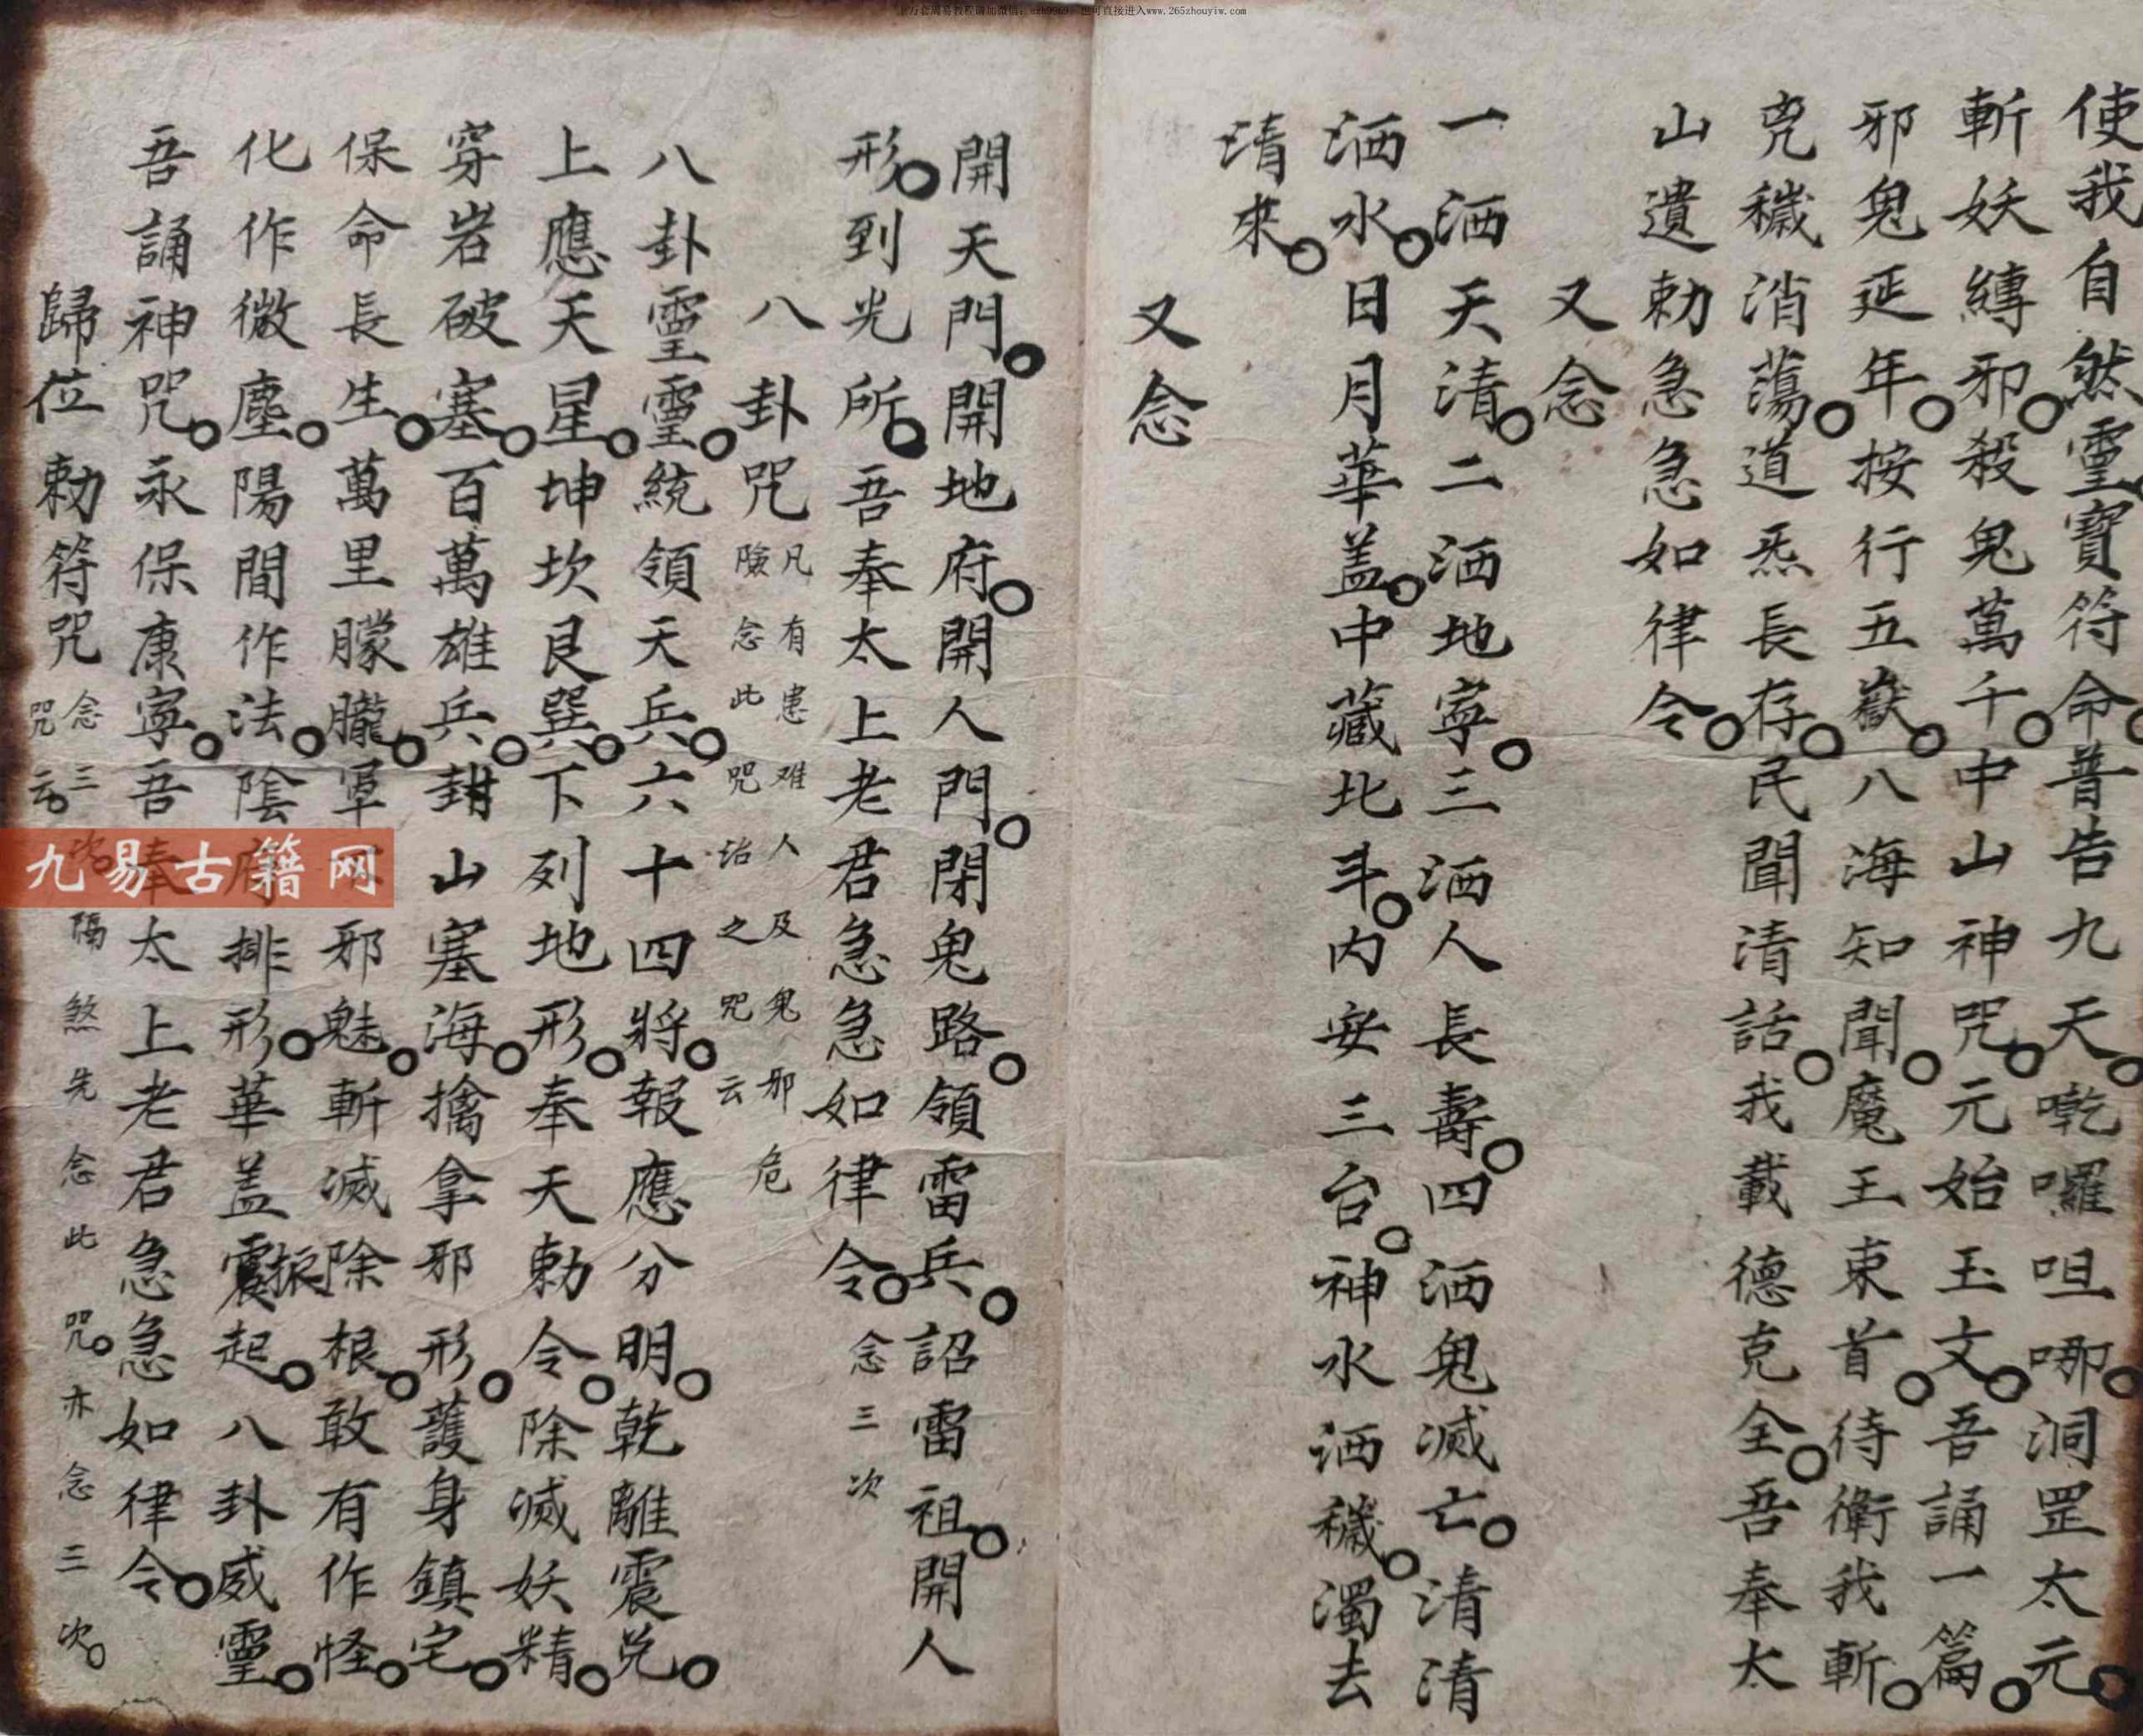 使我自然靈寶符命普告九天嚫囉呾哪洞罡太元
斬妖縛邪殺鬼萬千中山神咒元始玉文吾誦一篇
邪鬼延年按行五嶽八海知聞魔王束首待衛我斬
兇穢消蕩道炁長存民聞清話我載德克全吾奉太
山遺勅急急如律令
又念
一洒天清二洒地寧三洒人長壽四洒鬼滅亡清清
洒水日月華盖中藏北斗內安三台神水洒穢濁去
清來
又念
開天門開地府開人門閉鬼路領雷兵詔雷祖開人
形到光所吾奉太上老君急急如律令念三次
八卦咒凡有患难人及鬼邪危
險念此咒治之咒云
八卦靈靈統領天兵六十四將報應分明乾離震兌
上應天星坤坎艮巽下列地形奉天勅令除滅妖精
穿岩破塞百萬雄兵封山塞海擒拿邪形護身鎮宅
保命長生萬里朦朧邪魅斬滅除根敢有作怪
化作微塵陽間作法陰府排形華盖震振起八卦威靈
吾誦神咒永保康寧吾奉太上老君急急如律令
歸位勅符咒念三次隔煞先念此咒亦念三次
咒云
九易古籍网
www.265zhouyiw.com